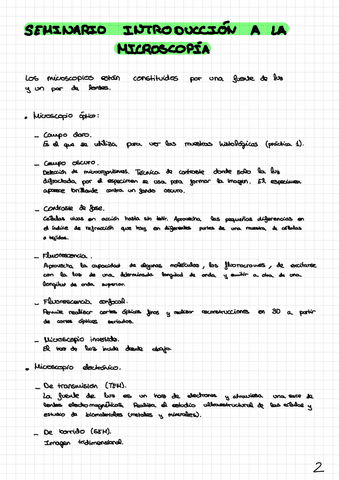 SEMINARIO INTRODUCCIÓN A LA
MICROSCOPÍA
Los microscopios están constituidos por una fuente de luz
y un par de lentes.
• Microscopio óptico:
– Campo claro.
Es el que se utiliza para ver las muestras histológicas (práctica 1).
– Campo oscuro.
Detección de microorganismos. Técnica de contraste donde solo la luz
difractada por el especimen se usa para formar la imagen. El especimen
aparece brillante contra un fondo oscuro.
– Contraste de fase.
Células vivas en acción hasta sin teñir. Aprovecha las pequeñas diferencias en
el índice de refracción que hay en diferentes partes de una muestra de células
o tejidos.
– Fluorescencia.
Aprovecha la capacidad de algunas moléculas, los fluorocromos, de excitarse
con la luz de una determinada longitud de onda, y emitir a otra, de una
longitud de onda superior.
– Fluorescencia confocal.
Permite realizar cortes ópticos finos y realizar reconstrucciones en 3D a partir
de cortes ópticos seriados.
– Microscopio invertido.
El haz de luz incide desde abajo.
• Microscopio electrónico.
– De transmisión (TEM).
La fuente de luz es un haz de electrones y atraviesa una serie de
lentes electromagnéticas. Realiza el estudio ultraestructural de las células y
estudio de biomateriales (metales y minerales).
– De barrido (SEM).
Imagen tridimensional.
2